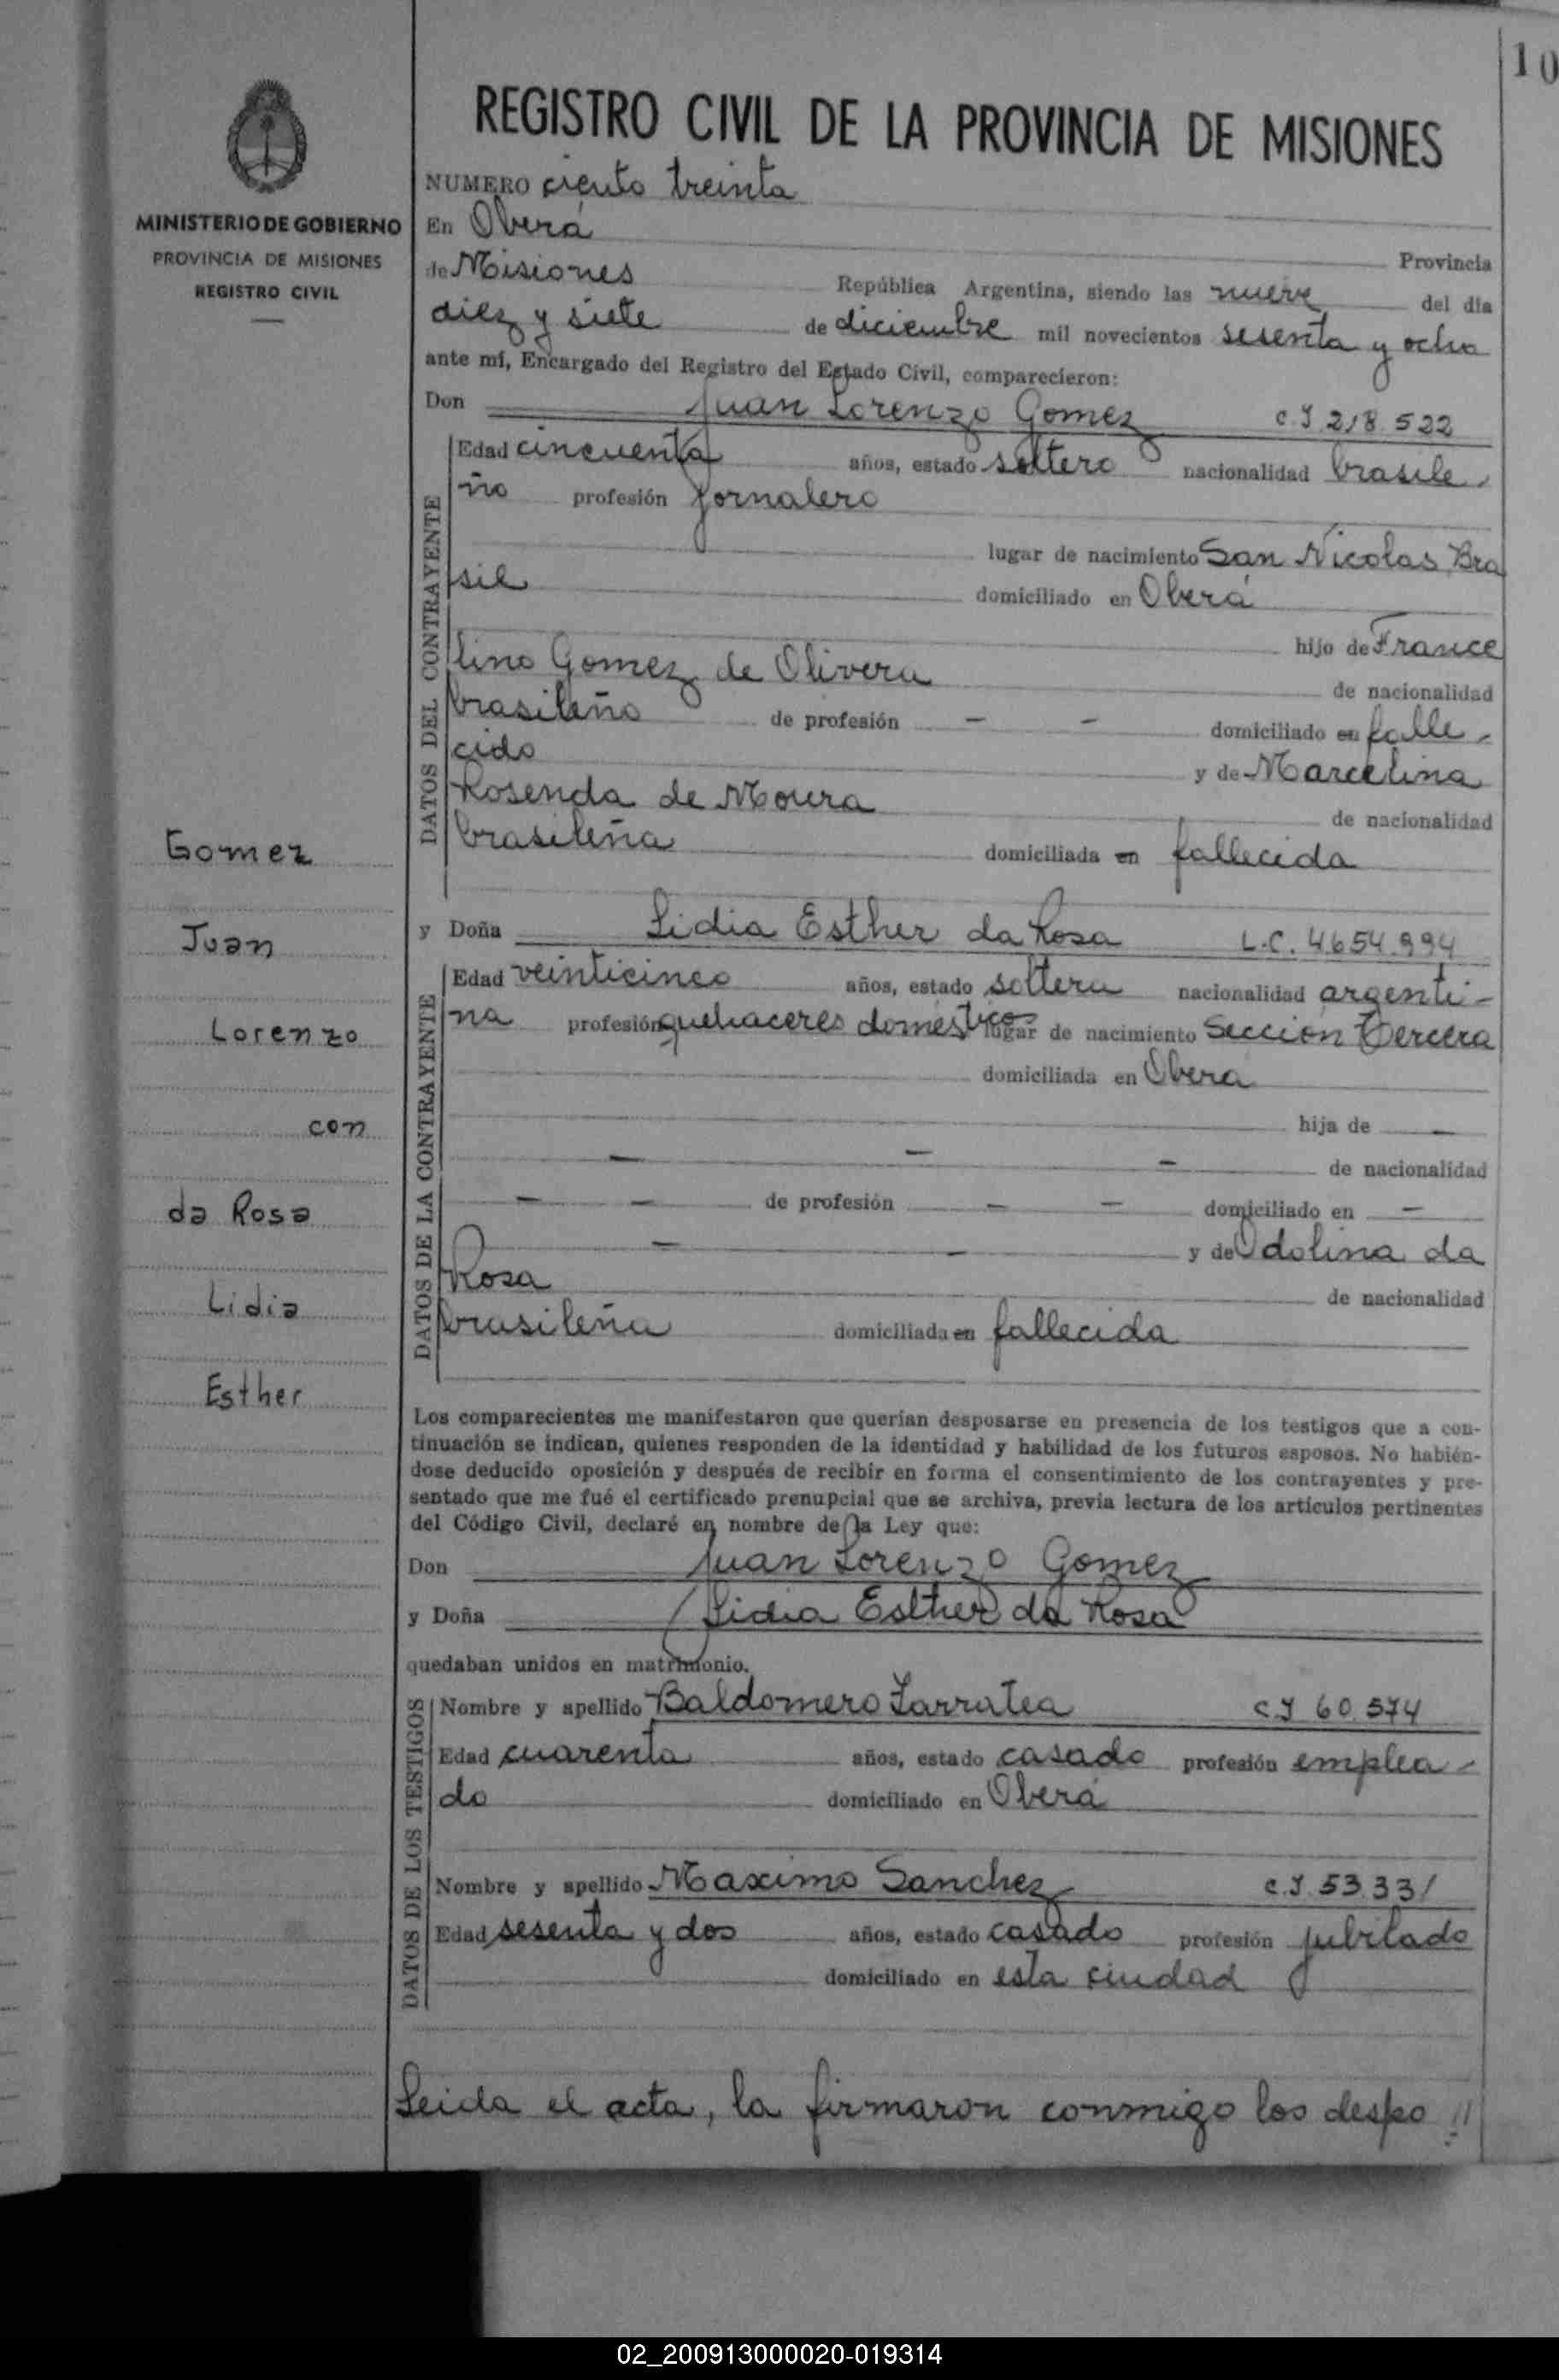 10
REGISTRO CIVIL DE LA PROVINCIA DE MISIONES
MINISTERIO DE GOBIERNO
PROVINCIA DE MISIONES
REGISTRO CIVIL
NUMERO ciento treinta
En Oberá Provincia
de Misiones República Argentina, siendo las nueve del dia
diez y siete de diciembre mil novecientos sesenta y ocho
ante mí, Encargado del Registro del Estado Civil, comparecieron:
Don Juan Lorenzo Gomez C.I 218.522
DATOS DEL CONTRAYENTE
Edad cincuenta años, estado soltero nacionalidad brasile-
ño profesión jornalero
lugar de nacimiento San Nicolas Bra
sil domiciliado en Oberá
hijo de France
lino Gomez de Olivera de nacionalidad
brasileño de profesión - - domiciliado en falle-
cido y de Marcelina
Rosenda de Moura de nacionalidad
brasileña domiciliada en fallecida
y Doña Lidia Esther da Rosa L.C. 4.654.994
DATOS DE LA CONTRAYENTE
Edad veinticinco años, estado soltera nacionalidad argenti-
na profesión quehaceres domesticos lugar de nacimiento Sección Tercera
domiciliada en Oberá
hija de -
- - - de nacionalidad
- - de profesión - - domiciliado en -
- - y de Odolina da
Rosa de nacionalidad
brasileña domiciliada en fallecida
Gomez
Juan
Lorenzo
con
da Rosa
Lidia
Esther
Los comparecientes me manifestaron que querían desposarse en presencia de los testigos que a con-
tinuación se indican, quienes responden de la identidad y habilidad de los futuros esposos. No habién-
dose deducido oposición y después de recibir en forma el consentimiento de los contrayentes y pre-
sentado que me fué el certificado prenupcial que se archiva, previa lectura de los artículos pertinentes
del Código Civil, declaré en nombre de la Ley que:
Don Juan Lorenzo Gomez
y Doña Lidia Esther da Rosa
quedaban unidos en matrimonio.
DATOS DE LOS TESTIGOS
Nombre y apellido Baldomero Larratea C.I 60.574
Edad cuarenta años, estado casado profesión emplea-
do domiciliado en Oberá
Nombre y apellido Maximo Sanchez C.I. 53.331
Edad sesenta y dos años, estado casado profesión jubilado
domiciliado en esta ciudad
Leida el acta, la firmaron conmigo los despo //
02_200913000020-019314